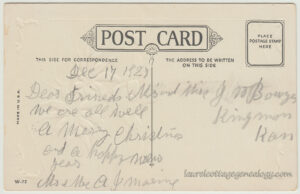 POST CARD
PLACE
POSTAGE STAMP
HERE
THIS SIDE FOR CORRESPONDENCE
THE ADDRESS TO BE WRITTEN
ON THIS SIDE
Dec 17 1921
Dear Friends
we are all well
a Merry Christmas
and a happy new
year
Mr & Mrs A J
Mr and Mrs J W
Kingman
Kan
MADE IN U.S.A.
W-12
laurelcottagegenealogy.com